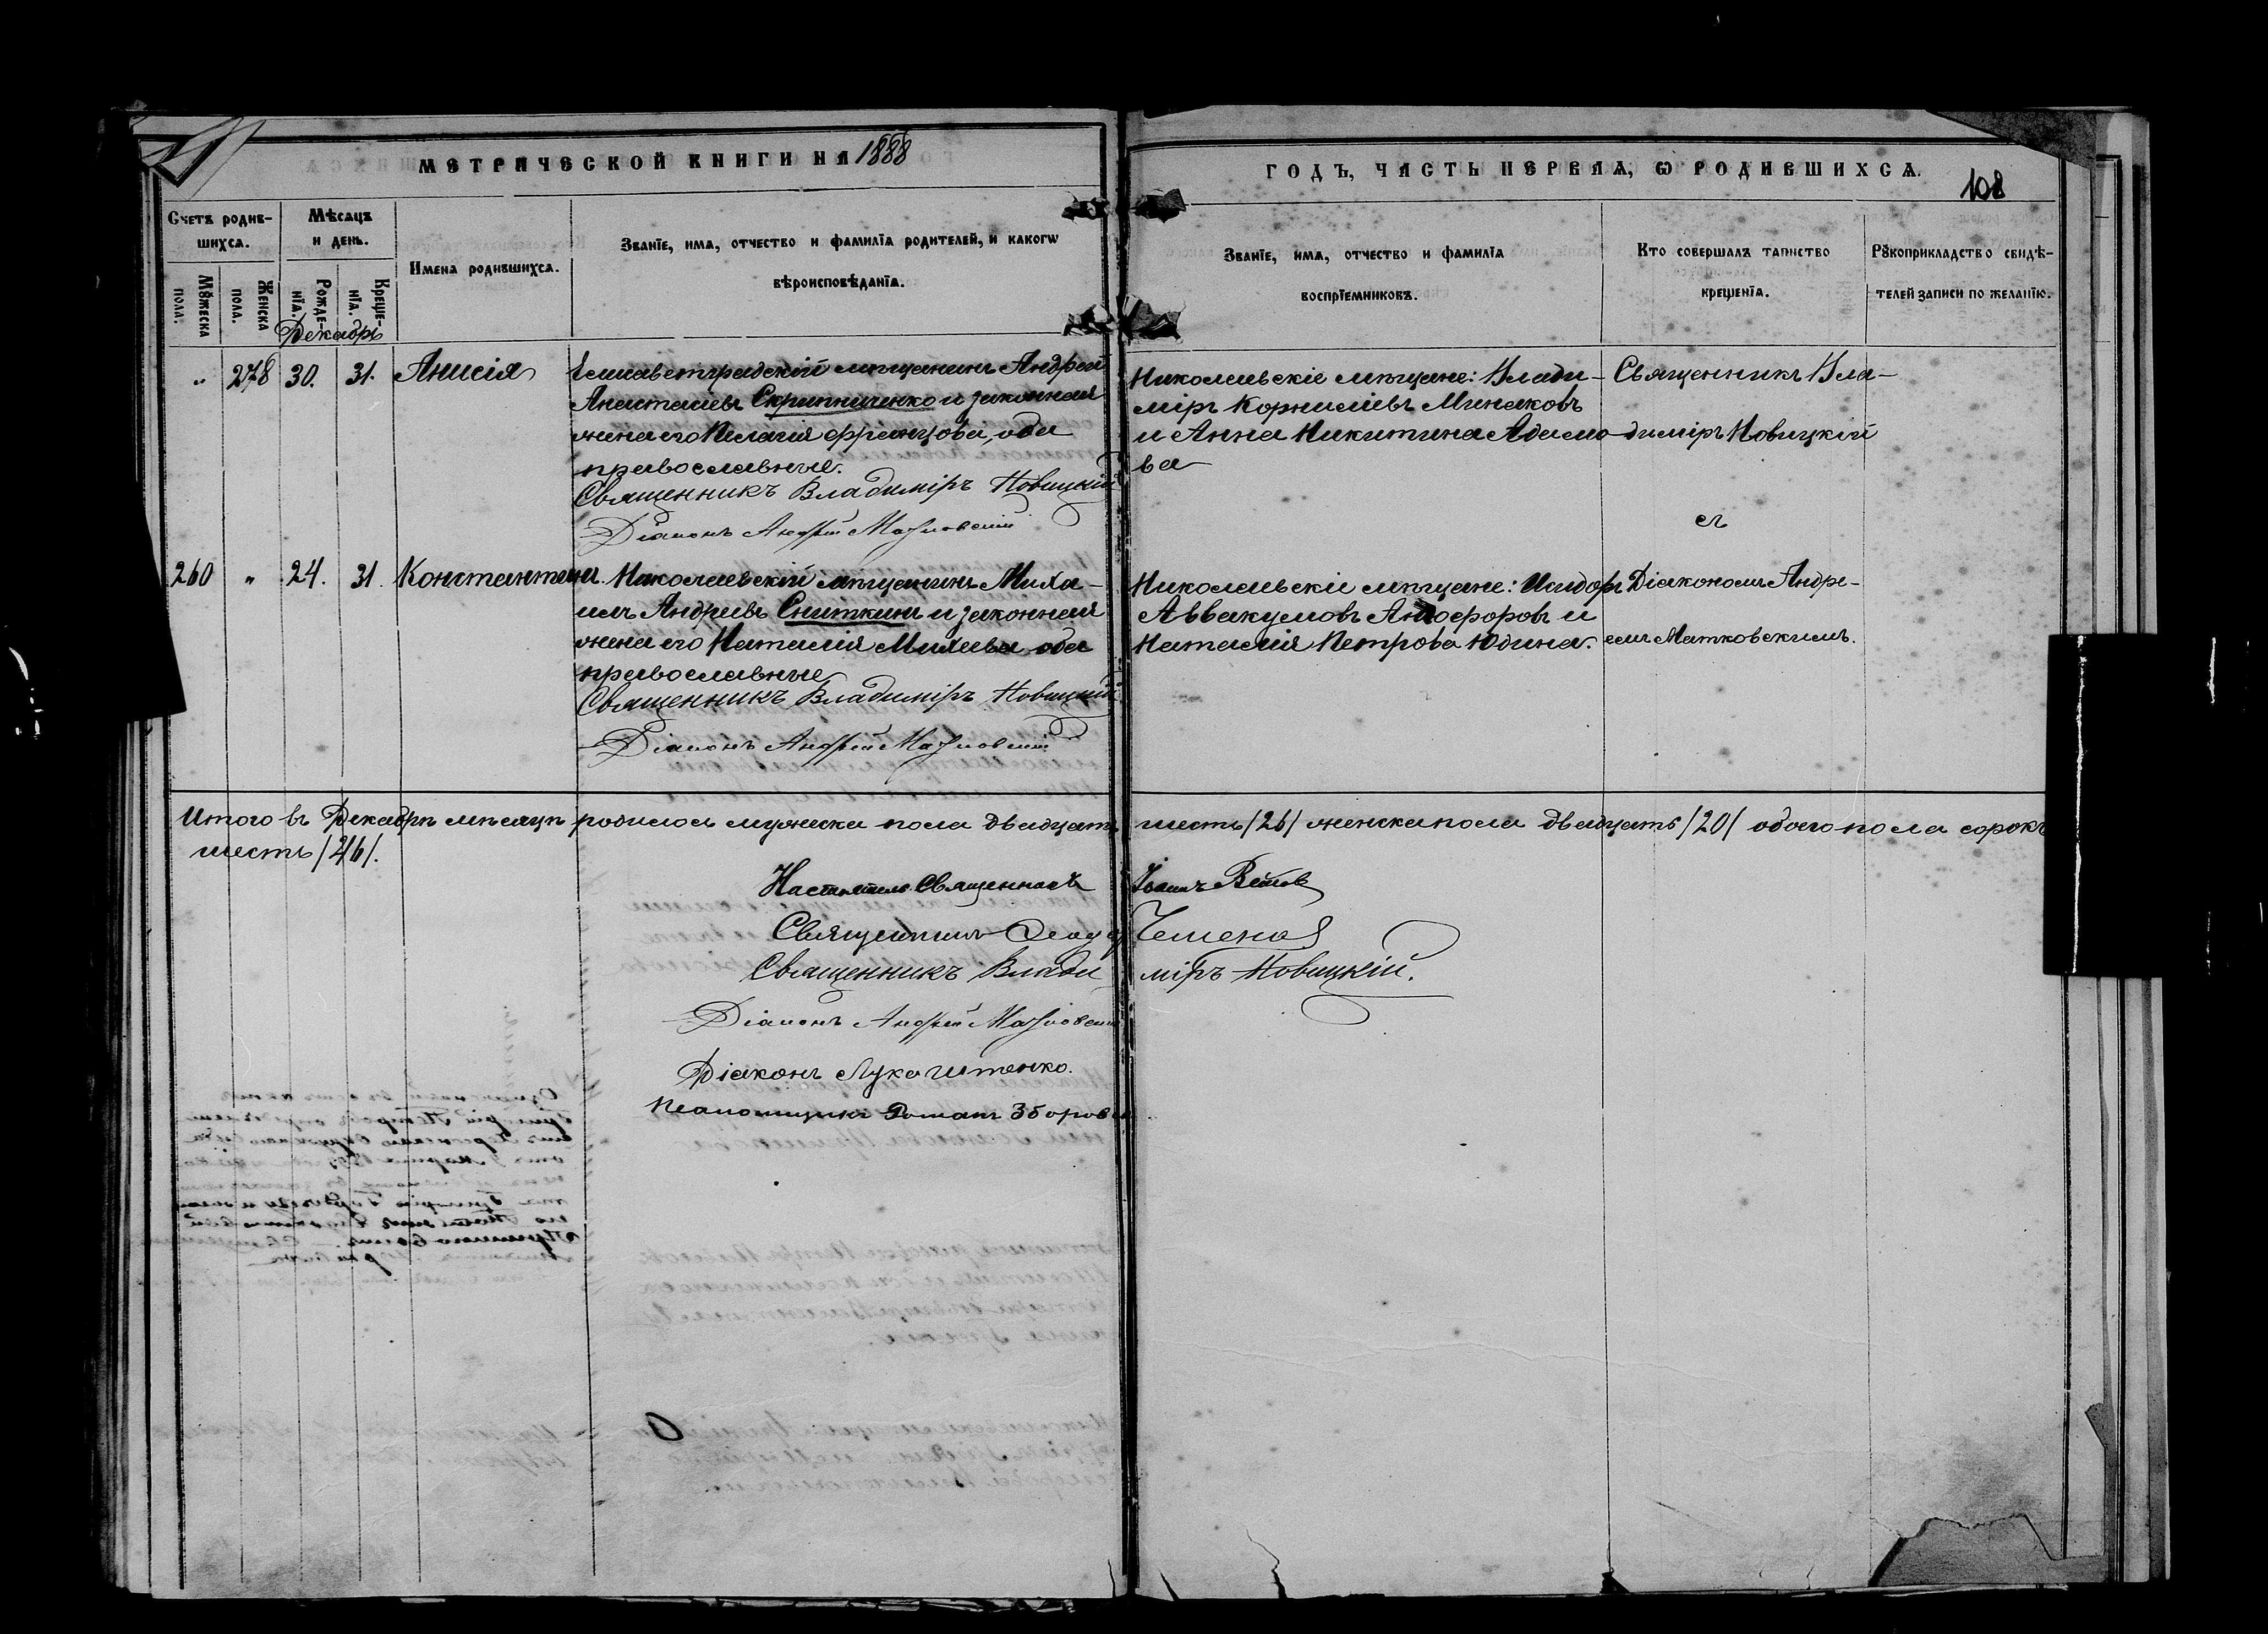 МЕТРИЧЕСКОЙ КНИГИ НА 1888
ГОДЪ, ЧАСТЬ ПЕРВАЯ, Ѡ РОДИВШИХСѦ.
108
Счетъ родив-
шихсѧ.
Мѣсѧцъ
и день.
Имена родившихсѧ.
Званїе, имѧ, отчество и фамилїѧ родителей, и какогѡ
вѣроисповѣданїѧ.
Званїе, имѧ, отчество и фамилїѧ
воспрїемниковъ.
Кто совершалъ таинство
крещенїѧ.
Рꙋкоприкладство свидѣ-
телей записи по желанїю.
Мꙋжеска
пола.
Женска
пола.
Рожде-
нїѧ.
Креще-
нїѧ.
Декабрь
" 278 30. 31. Анисія
Елисаветградскій мѣщанинъ Андрей
Анастасіевъ Скрипниченко и законная
жена его Пелагія Францова, оба
православные.
Священникъ Владиміръ Новицкій
Діаконъ Андрей Матковскій
Николаевскіе мѣщане: Влади-
міръ Корниліевъ Минаковъ
и Анна Никитина Адамо
ва
Священникъ Вла-
диміръ Новицкій
съ
260 " 24. 31. Константинъ.
Николаевскій мѣщанинъ Миха-
илъ Андреевъ Сниткинъ и законная
жена его Наталія оба
православные
Священникъ Владиміръ Новицкій
Діаконъ Андрей Матковскій
Николаевскіе мѣщане: Исидоръ
Аввакумовъ и
Наталія Петрова Юдина.
Діакономъ Андре-
емъ Матковскимъ.
Итого въ Декабрѣ мѣсяцѣ родилось мужеска пола двадцать шесть /26/ женска пола двадцать /20/ обоего пола сорокъ
шесть /46/.
Настоятель Священникъ Іоаннъ
Священникъ
Священникъ Влади міръ Новицкій.
Діаконъ Андрей Матковскій
Діаконъ Лука Итенко.
Псаломщикъ Романъ